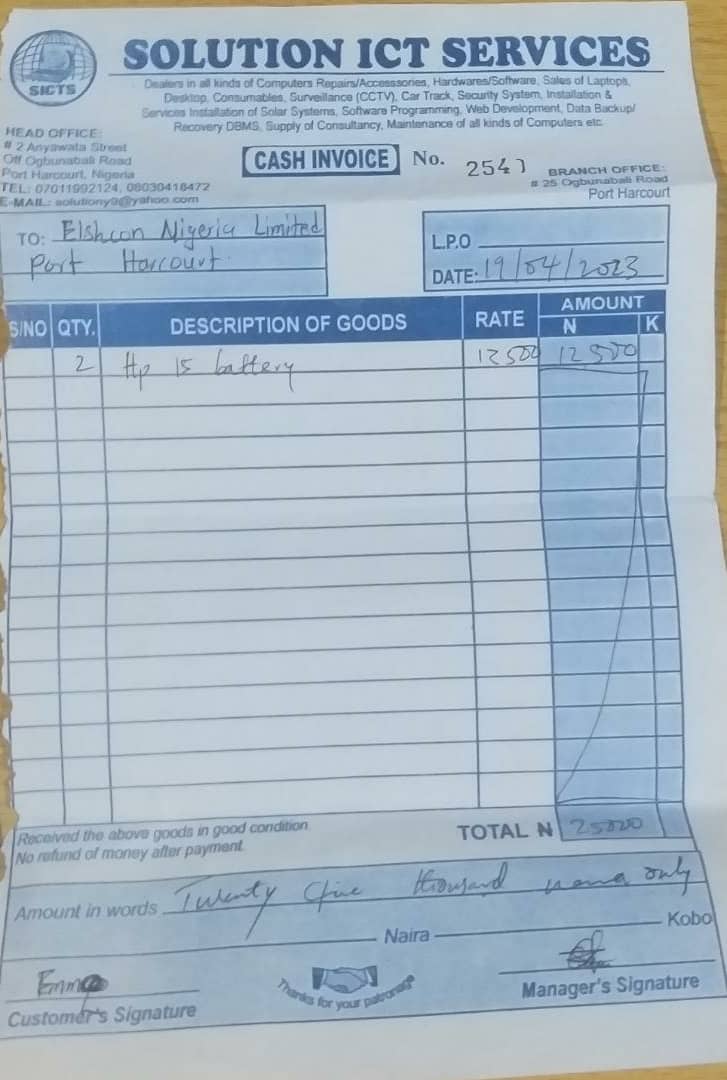 SICTS
SOLUTION ICT SERVICES
Dealers in all kinds of Computers Repairs/Accesssories, Hardwares/Software, Sales of Laptops,
Desktop, Consumables, Surveillance (CCTV), Car Track, Security System, Installation &
Services Installation of Solar Systems, Software Programming, Web Development, Data Backup/
Recovery DBMS, Supply of Consultancy, Maintenance of all kinds of Computers etc.
HEAD OFFICE:
# 2 Anyawata Street
Off Ogbunabali Road
Port Harcourt, Nigeria
TEL: 07011992124, 08030416472
E-MAIL: solutiony9@yahoo.com
CASH INVOICE No. 2541
BRANCH OFFICE:
# 25 Ogbunabali Road
Port Harcourt
TO: Elshcon Nigeria Limited
Port Harcourt.
L.P.O
DATE: 19/04/2023
S/NO QTY. DESCRIPTION OF GOODS RATE AMOUNT
N K
2 Hp 15 battery 12500 12500
Received the above goods in good condition
No refund of money after payment.
TOTAL N 25000
Amount in words Twenty five thousand naira only
Naira Kobo
Emma
Customer's Signature
Thanks for your patronage
Manager's Signature